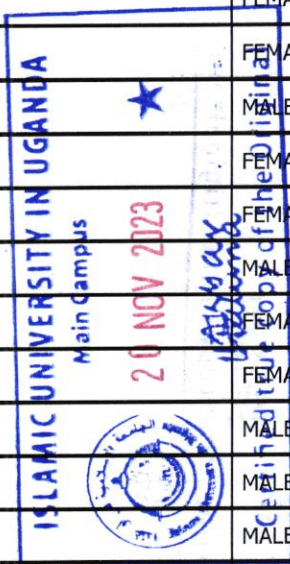 ISLAMIC UNIVERSITY IN UGANDA
Main Campus
20 NOV 2023
Certified true copy of the Original
FEMA
FEMA
MALE
FEMA
FEMA
MALE
FEMA
FEMA
MALE
MALE
MALE